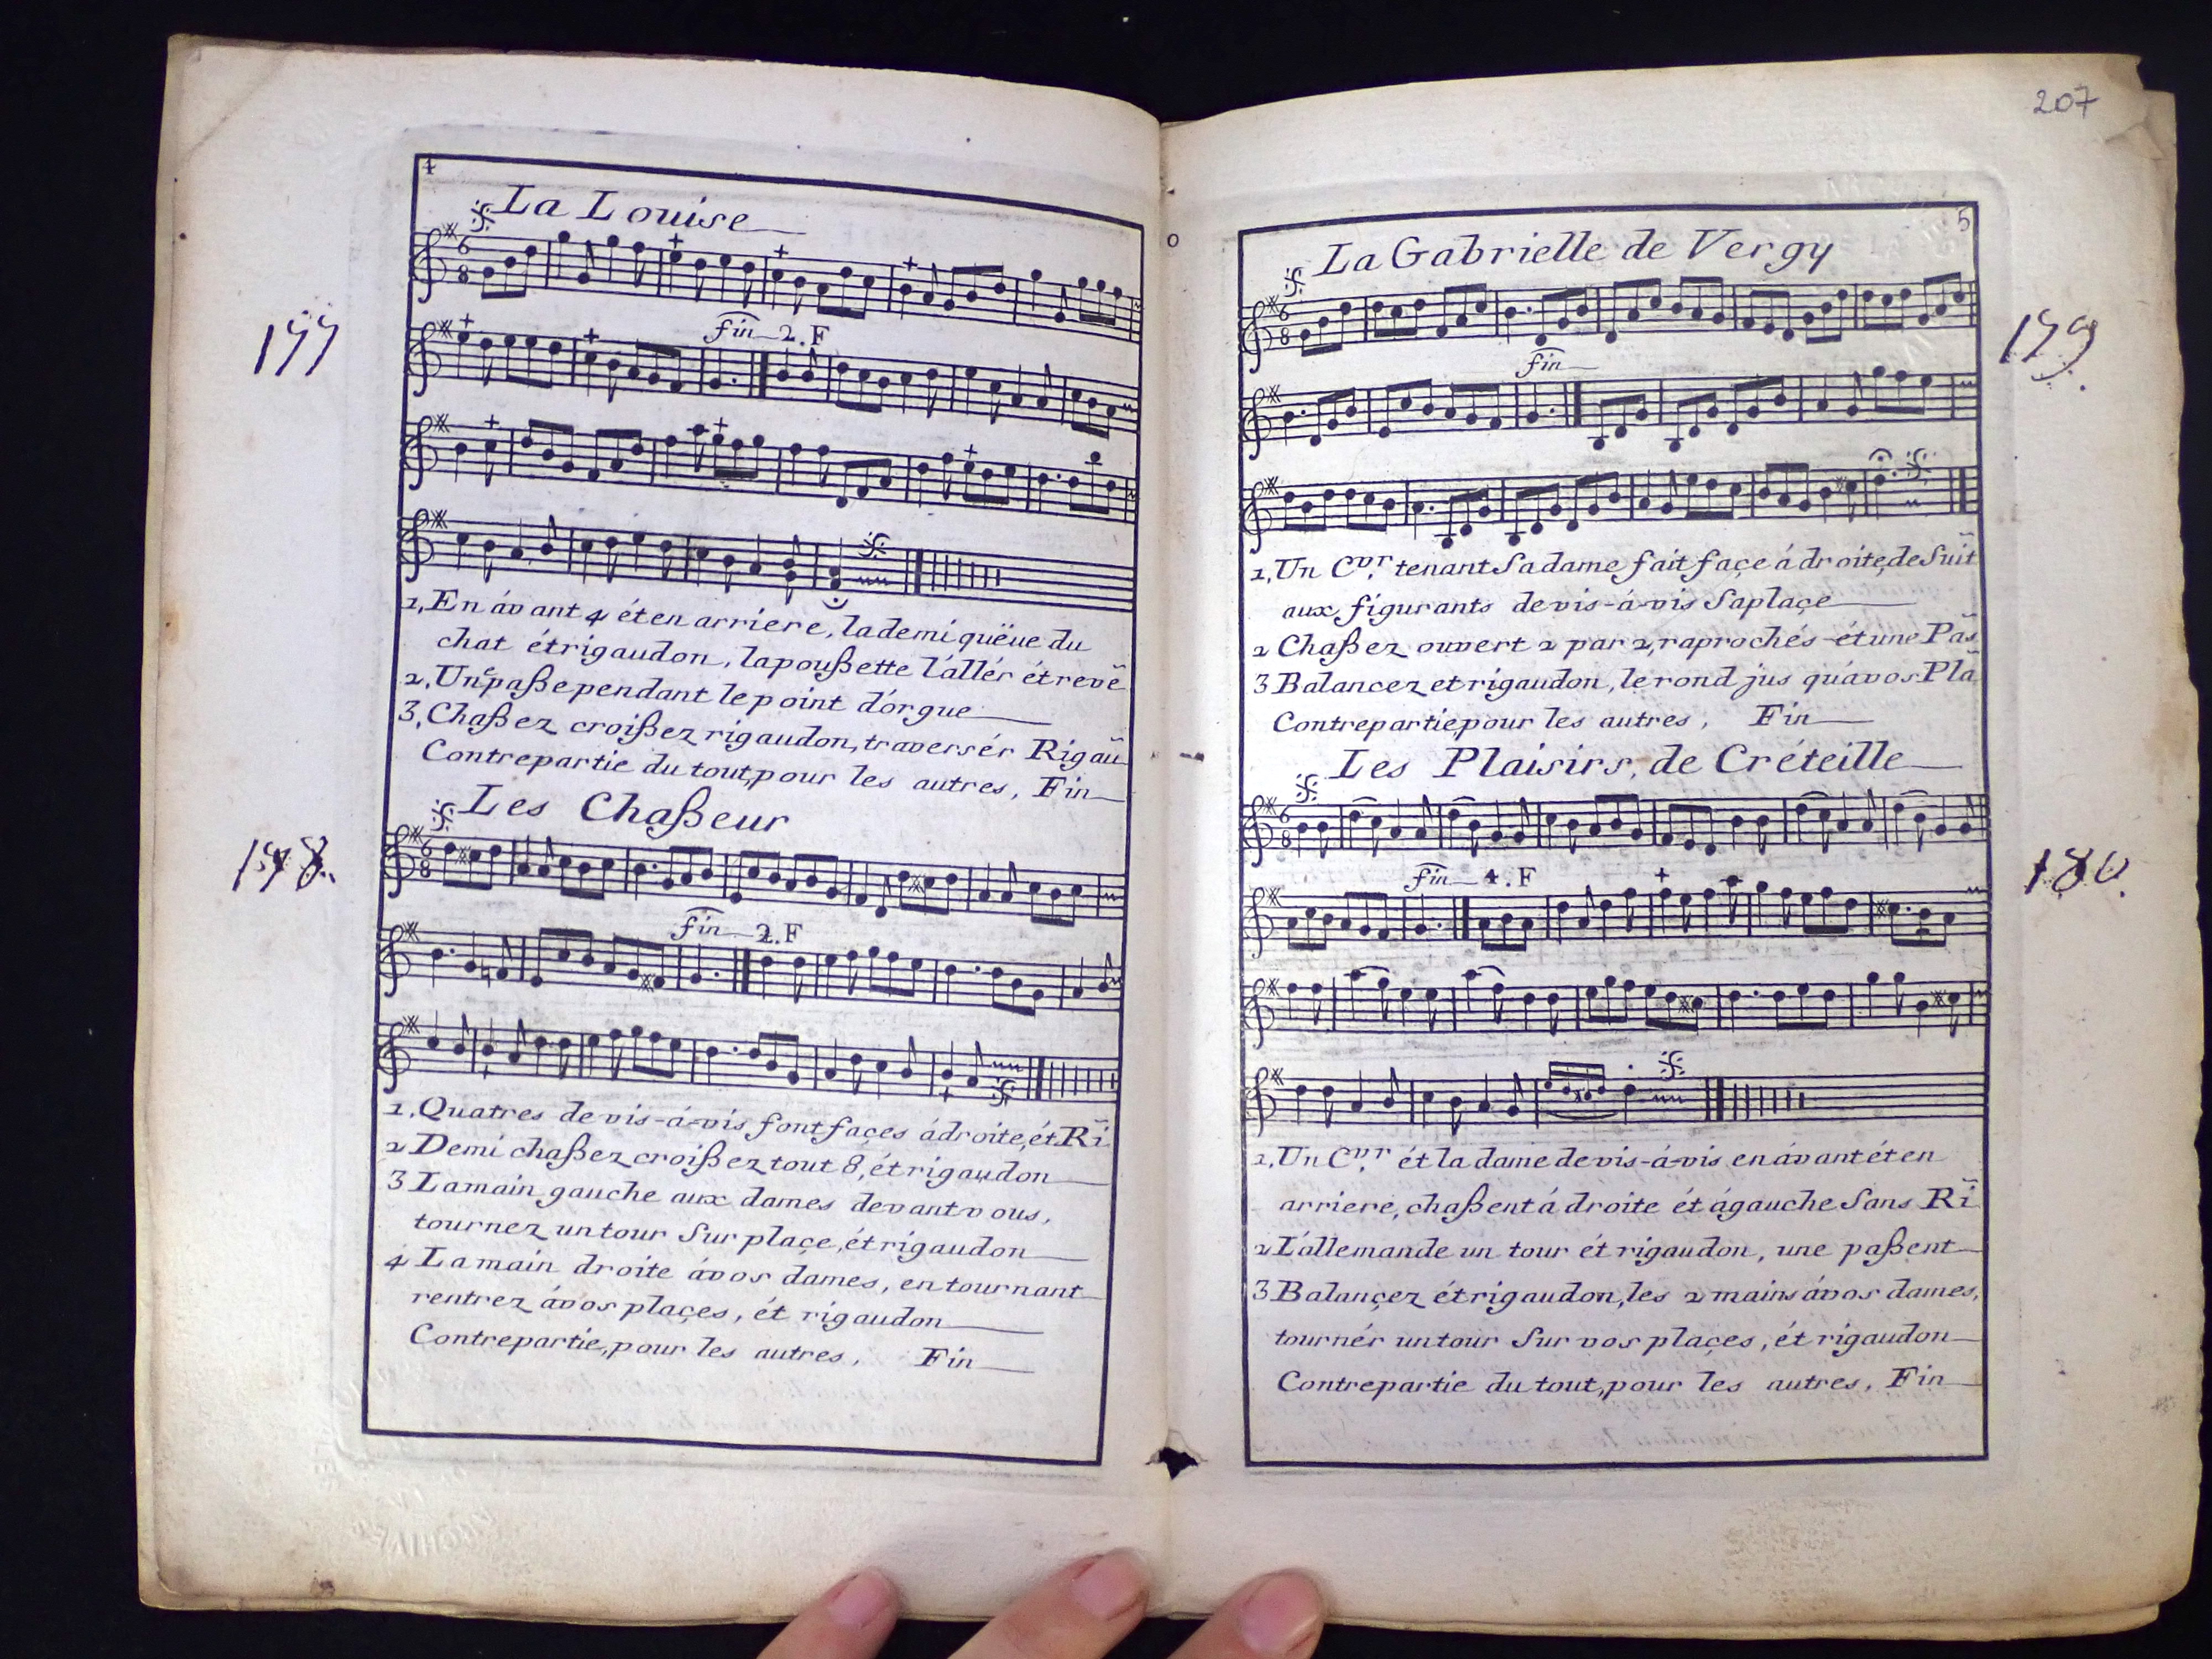 4
La Louise
6
8
177
fin 2.F
1, En ávant 4 ét en arriere, la demi quëue du
chat ét rigaudon, la poußette l'allér ét revẽ
2, Une paße pendant le point d'orgue
3, Chaßez croißez rigaudon, traversér Rigaũ
Contrepartie du tout, pour les autres, Fin
Les Chaßeur
6
8
178.
fin 2.F
1, Quatres de vis-á-vis font façes á droite, ét Rĩ
2 Demi chaßez croißez tout 8, ét rigaudon
3 La main gauche aux dames devant vous,
tournez un tour Sur plaçe, ét rigaudon
4 La main droite ávos dames, en tournant
rentrez ávos plaçes, ét rigaudon
Contrepartie, pour les autres, Fin
207
5
La Gabrielle de Vergy
6
8
179.
fin
1, Un Cvr. tenant Sa dame fait façe á droite, de Suit̃
aux figurants de vis-á-vis Sa plaçe
2 Chaßez ouvert 2 par 2, raprochés ét une Pãs
3 Balancez et rigaudon, le rond jus qu'ávos Plã
Contrepartie, pour les autres, Fin
Les Plaisirs, de Créteille
6
8
fin 4.F
180.
1, Un Cvr. ét la dame de vis-á-vis en ávant ét en
arriere, chaßent á droite ét ágauche Sans Rĩ
2 L'allemande un tour ét rigaudon, une paßent
3 Balançez ét rigaudon, les 2 mains ávos dames,
tournér un tour Sur vos plaçes, ét rigaudon
Contrepartie du tout, pour les autres, Fin